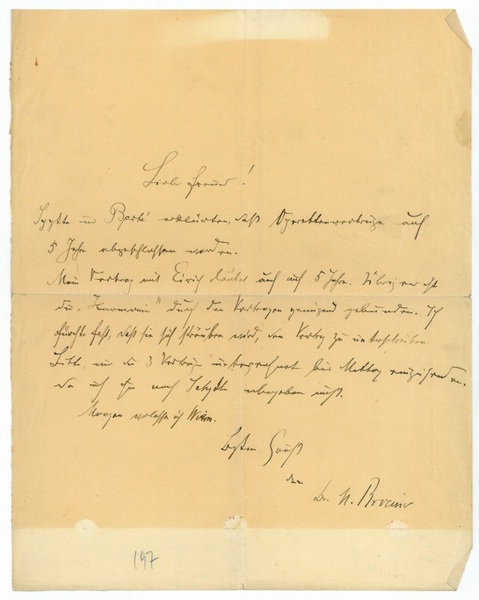 Lieber Freund!
und Berté erklärten, daß Operettenverträge auf
5 Jahre abgeschlossen werden.
Mein Vertrag mit Eirich lautet auch auf 5 Jahre. Übrigens ist
die „Harmonie“ durch den Vertrag genügend gebunden. Ich
fürchte fast, daß sie sich sträuben wird, den Vertrag zu unterschreiben.
Bitte, mir die 3 Verträge bis Mittag
da ich sie noch übergeben muß.
Morgen verlasse ich Wien.
Besten Gruß
Dr. M. Brociner
197